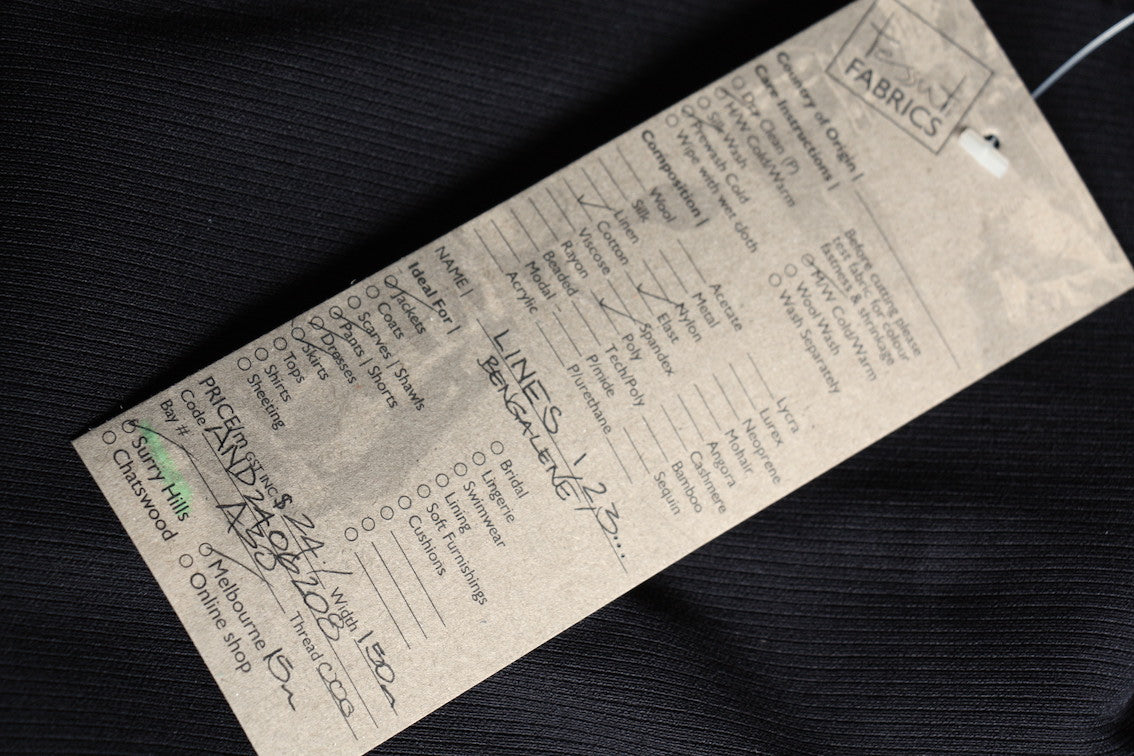 tessuti
FABRICS
Country of Origin |
Care Instructions |
Dry Clean (P)
H/W Cold/Warm
Silk Wash
Prewash Cold
Wipe with wet cloth
Before cutting please
test fabric for colour
fastness & shrinkage
M/W Cold/Warm
Wool Wash
Wash Separately
Composition |
Wool
Silk
Linen
Cotton
Viscose
Rayon
Beaded
Modal
Acrylic
Acetate
Metal
Nylon
Elast
Spandex
Poly
Tech/Poly
P/mide
P/urethane
Lycra
Lurex
Neoprene
Mohair
Angora
Cashmere
Bamboo
Sequin
NAME | LINES 1, 2, 3...
BENGALENE
Ideal For |
Jackets
Coats
Scarves | Shawls
Pants | Shorts
Dresses
Skirts
Tops
Shirts
Sheeting
Bridal
Lingerie
Swimwear
Lining
Soft Furnishings
Cushions
PRICE/m GST INC $ 24.- / Width 150
Code AND2406208 Thread
Bay #
Surry Hills
Chatswood
Melbourne 15m
Online shop